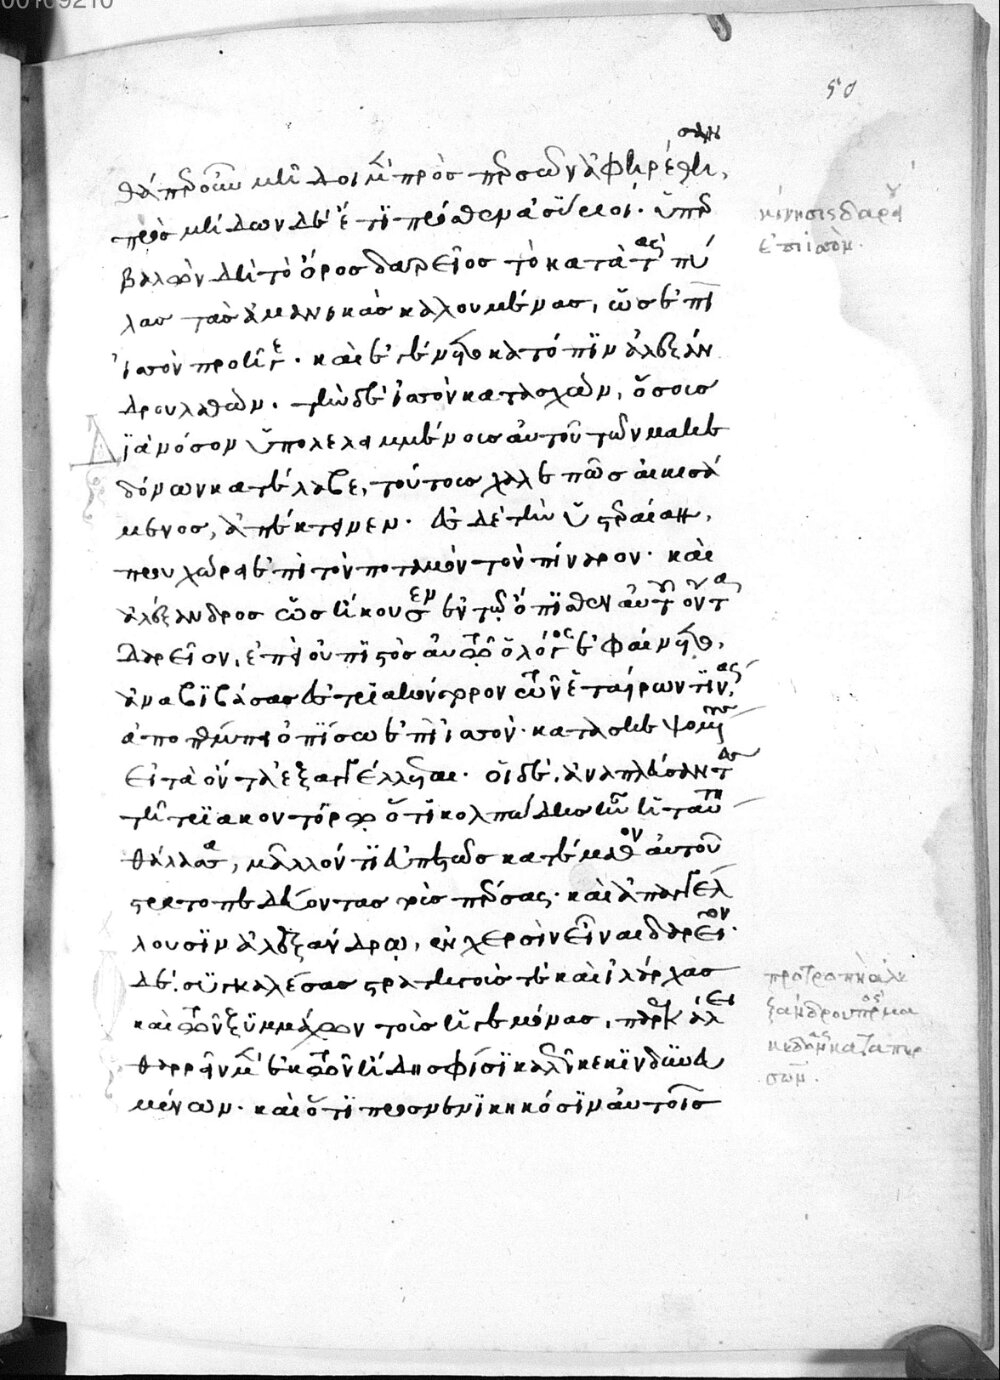 θάπερ οὖν μῆδοι μὲν πρὸς περσῶν ἀφῃρέθησαν,
πρὸς μήδων δὲ ἔτι πρόσθεν ἀσσύριοι. ὑπερ
βαλὼν δὴ τὸ ὄρος δαρεῖος τὸ κατὰ τὰς πύ
λας τὰς ἀμανικὰς καλουμένας, ὡς ἐπὶ
ἰσσὸν προῆγε. καὶ ἐγένετο κατόπιν ἀλεξάν
δρου λαθών. τὴν δὲ ἰσσὸν κατασχών, ὅσοις
διὰ νόσον ὑπολελειμμένοις αὐτοῦ τῶν μακε
δόνων κατέλαβε, τούτοις χαλεπῶς αἰκισά
μενος, ἀπέκτεινεν. ἐς δὲ τὴν ὑστεραίαν,
προυχώρει ἐπὶ τὸν ποταμὸν τὸν πίναρον. καὶ
ἀλέξανδρος ὡς ἤκουσεν ἐν τῷ ὄπισθεν αὐτοῦ ὄντα
δαρεῖον, ἐπεὶ οὐ πιστὸς αὐτῷ ὁ λόγος ἐφαίνετο,
ἀναβιβάσας ἐς τριακόντορον τῶν ἑταίρων τινὰς,
ἀποπέμπει ὀπίσω ἐπὶ ἰσσὸν. κατασκεψομένους
εἰ τὰ ὄντα ἐξαγγέλλεται. οἱ δὲ, ἀναπλεύσαντες
τῇ τριακοντόρῳ ὅτι κολπώδης ἦν ἡ ταύτῃ
θάλασσα, μᾶλλόν τι εὐπετῶς κατέμαθον αὐτοῦ
στρατοπεδεύοντας τοὺς πέρσας. καὶ ἀπαγγέλ
λουσιν ἀλεξάνδρῳ, ἐν χερσὶν εἶναι δαρεῖον.
δὲ, συγκαλέσας στρατηγούς τε καὶ ἰλάρχας
καὶ τῶν ξυμμάχων τοὺς ἡγεμόνας, παρεκάλει
θαρρεῖν μὲν ἐκ τῶν ἤδη σφίσι καλῶς κεκινδυνευ
μένων. καὶ ὅτι προσνενικηκόσιν αὐτοῖς
50
κίνησις δαρείου
ἐπὶ ἰσσὸν.
προτροπὴ ἀλε
ξάνδρου πρὸς μα
κεδόνας κατὰ περ
σῶν.